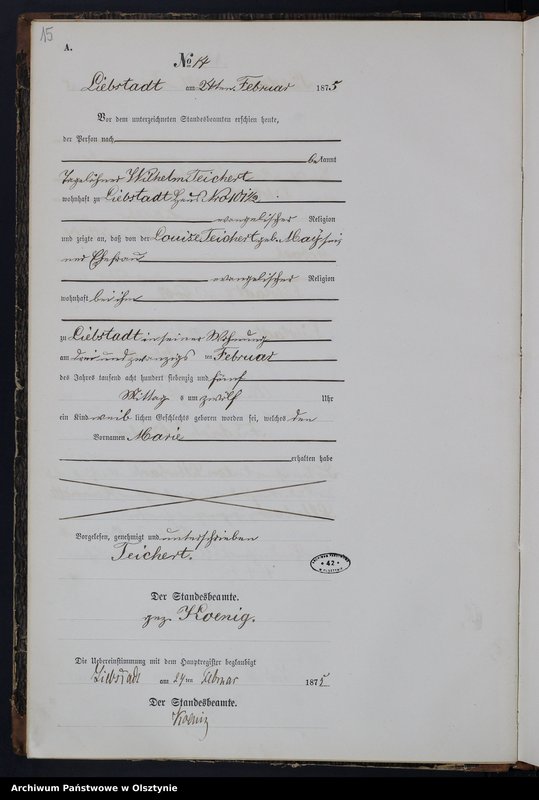 15
A.
No 14
Liebstadt am 24ten Februar 1875
Vor dem unterzeichneten Standesbeamten erschien heute,
der Person nach
bekannt
Tagelöhner Wilhelm Teichert
wohnhaft zu Liebstadt Haus No 107 1/2
evangelischer Religion
und zeigte an, daß von der Louise Teichert geb. May sei
ner Ehefrau
evangelischer Religion
wohnhaft bei ihm
zu Liebstadt in seiner Wohnung
am drei und zwanzigs ten Februar
des Jahres tausend acht hundert siebenzig und fünf
Mittag s um zwölf Uhr
ein Kind weib lichen Geschlechts geboren worden sei, welches den
Vornamen Marie
erhalten habe
Vorgelesen, genehmigt und unterschrieben
Teichert.
* 42 *
Der Standesbeamte.
gez. Koenig.
Die Uebereinstimmung mit dem Hauptregister beglaubigt
Liebstadt am 24ten Februar 1875
Der Standesbeamte.
Koenig
Archiwum Państwowe w Olsztynie